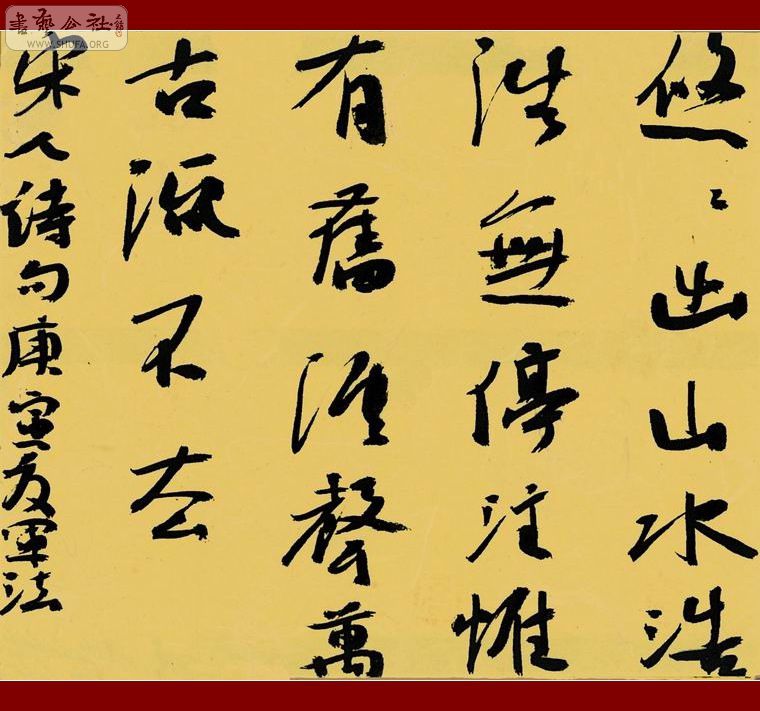 書藝公社
WWW.SHUFA.ORG
悠〻出山水浩
浩無停注惟
有舊淮聲萬
古流不去
宋人詩句庚寅友軍法